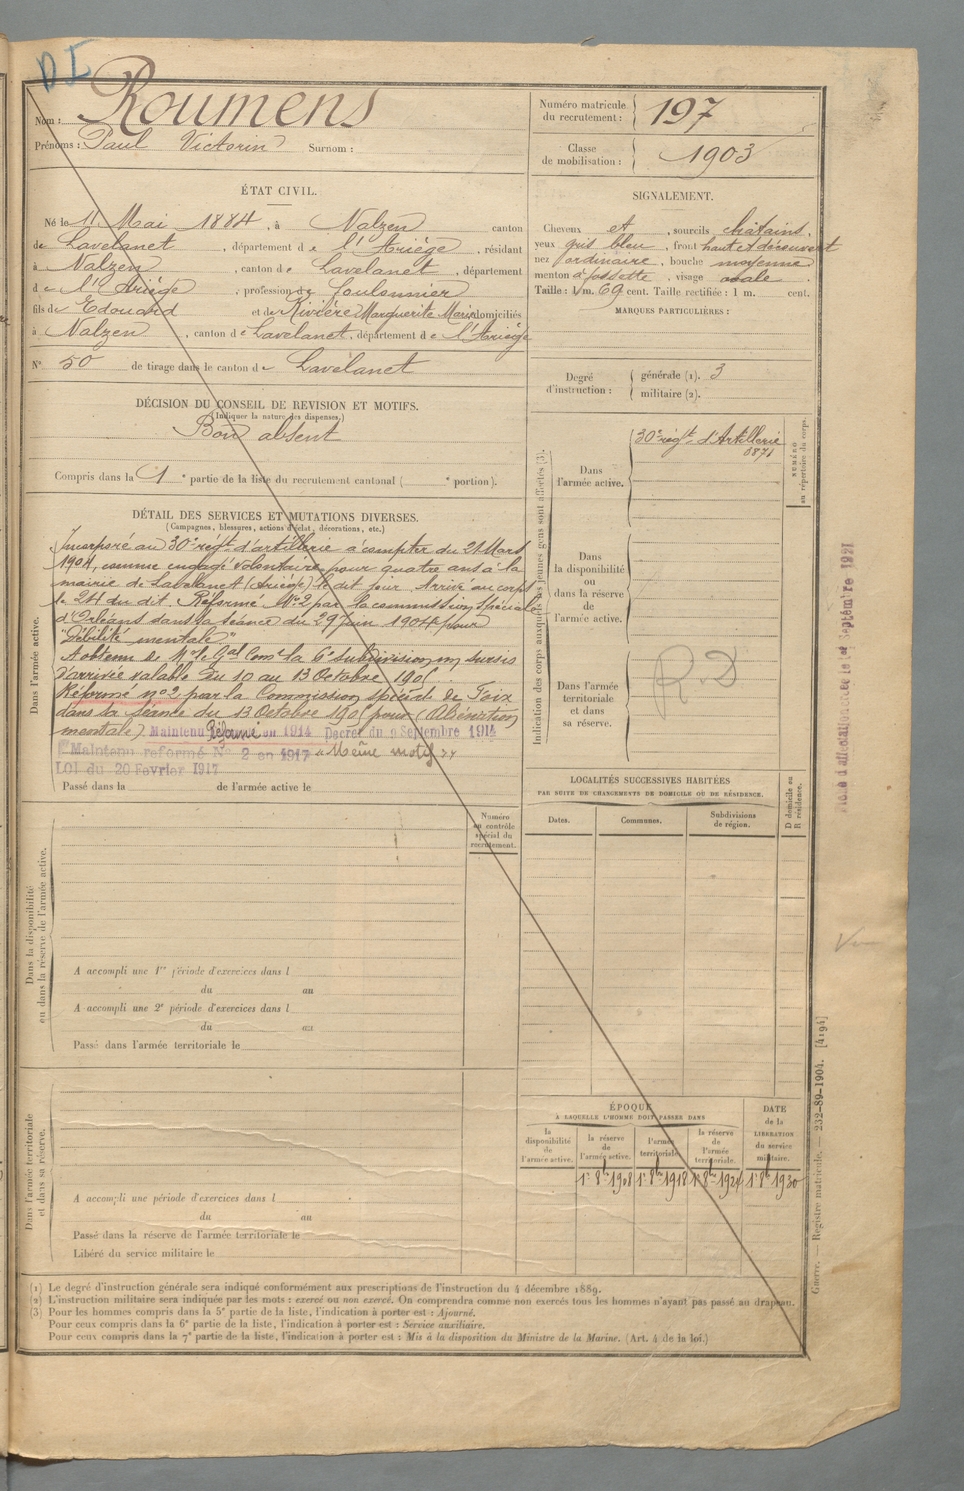 D I
Nom : Roumens
Prénoms : Paul Victorin Surnom :
Numéro matricule du recrutement : 197
Classe de mobilisation : 1903
ÉTAT CIVIL.
Né le 11 Mai 1884, à Nalzen canton
de Lavelanet, département de l'Ariège, résidant
à Nalzen, canton de Lavelanet, département
de l'Ariège, profession de foulonnier
fils de Edouard et de Rivière Marguerite Marie domiciliés
à Nalzen, canton de Lavelanet, département de l'Ariège
N° 50 de tirage dans le canton de Lavelanet
DÉCISION DU CONSEIL DE REVISION ET MOTIFS.
(Indiquer la nature des dispenses.)
Bon absent
Compris dans la 1e partie de la liste du recrutement cantonal ( e portion).
SIGNALEMENT.
Cheveux et , sourcils chatains,
yeux gris bleu, front haut et découvert
nez ordinaire, bouche moyenne
menton à fossette, visage ovale.
Taille : 1 m. 69 cent. Taille rectifiée : 1 m. cent.
MARQUES PARTICULIÈRES :
Degré d'instruction : générale (1). 3
militaire (2).
DÉTAIL DES SERVICES ET MUTATIONS DIVERSES.
(Campagnes, blessures, actions d'éclat, décorations, etc.)
Dans l'armée active.
Incorporé au 30e régt d'artillerie à compter du 21 Mars
1904, comme engagé volontaire pour quatre ans à la
mairie de Lavelanet (Ariège) le dit jour. Arrivé au corps
le 24 du dit. Réformé N°2 par la commission spéciale
d'Orléans dans sa séance du 29 juin 1904 pour
"Débilité mentale."
A obtenu de Mr le Gal Comt la 6e Subdivision un sursis
d'arrivée valable du 10 au 13 Octobre 190
Réformé n°2 par la Commission spéciale de Foix
dans sa séance du 13 Octobre 190 pour
mentale) Maintenu Réformé en 1914 Decret du 9 Septembre 1914
Maintenu reformé N° 2 en 1917 Même motif
LOI du 20 Fevrier 1917
Passé dans la de l'armée active le
Indication des corps auxquels les jeunes gens sont affectés (3).
Dans l'armée active.
30e régt d'Artillerie
NUMÉRO au répertoire du corps.
Dans la disponibilité ou dans la réserve de l'armée active.
Dans l'armée territoriale et dans sa réserve.
R.D
LOCALITÉS SUCCESSIVES HABITÉES
PAR SUITE DE CHANGEMENTS DE DOMICILE OU DE RÉSIDENCE.
Dates. Communes. Subdivisions de région. D domicile ou R résidence.
Dans la disponibilité ou dans la réserve de l'armée active.
Numéro au contrôle spécial du recrutement.
A accompli une 1re période d'exercices dans l
du au
A accompli une 2e période d'exercices dans l
du au
Passé dans l'armée territoriale le
Dans l'armée territoriale et dans sa réserve.
A accompli une période d'exercices dans l
du au
Passé dans la réserve de l'armée territoriale le
Libéré du service militaire le
ÉPOQUE
A LAQUELLE L'HOMME DOIT PASSER DANS
DATE de la LIBÉRATION du service militaire.
la disponibilité de l'armée active.
la réserve de l'armée active.
l'armée territoriale.
la réserve de l'armée territoriale.
1r 8bre 1908 1r 8bre 1918 1r 8bre 1924 1r 8bre 1930
(1) Le degré d'instruction générale sera indiqué conformément aux prescriptions de l'instruction du 4 décembre 1889.
(2) L'instruction militaire sera indiquée par les mots : exercé ou non exercé. On comprendra comme non exercés tous les hommes n'ayant pas passé au drapeau.
(3) Pour les hommes compris dans la 5e partie de la liste, l'indication à porter est : Ajourné.
Pour ceux compris dans la 6e partie de la liste, l'indication à porter est : Service auxiliaire.
Pour ceux compris dans la 7e partie de la liste, l'indication à porter est : Mis à la disposition du Ministre de la Marine. (Art. 4 de la loi.)
Guerre. — Registre matricule. — 232-89-1904. [4194]
d'affectation Septembre 1921